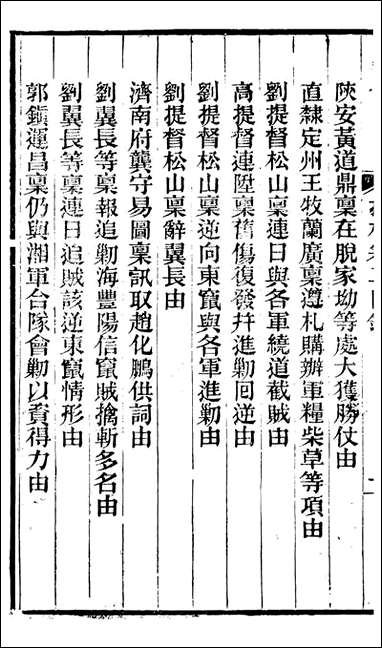 陝安黃道鼎稟在脫家坳等處大獲勝仗由
直隸定州王牧蘭廣稟遵札購辦軍糧柴草等項由
劉提督松山稟連日與各軍繞道截賊由
高提督連陞稟舊傷復發幷進勦回逆由
劉提督松山稟逆向東竄與各軍進勦由
劉提督松山稟辭翼長由
濟南府龔守易圖稟訊取趙化鵬供詞由
劉翼長等稟報追勦海豐陽信竄賊擒斬多名由
劉翼長等稟連日追賊該逆東竄情形由
郭鎮運昌稟仍與湘軍合隊會勦以資得力由